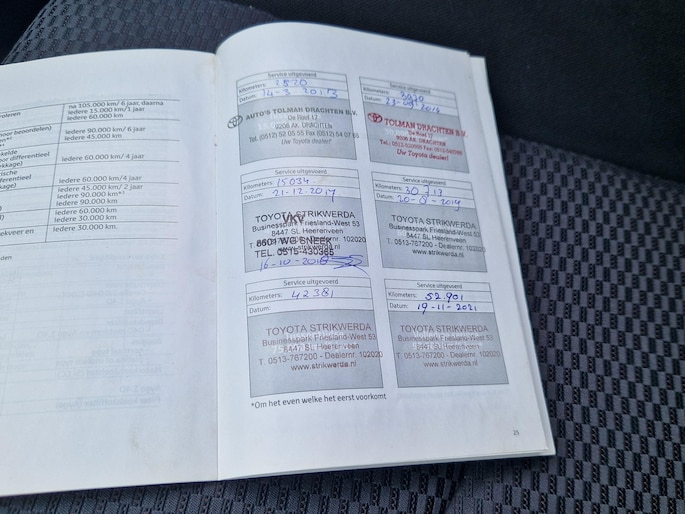 na 105.000 km/ 6 jaar, daarna
iedere 15.000 km/1 jaar
iedere 60.000 km
iedere 90.000 km/6 jaar
iedere 45.000 km
iedere 60.000 km/4 jaar
iedere 60.000 km/4 jaar
iedere 45.000 km/ 2 jaar
iedere 90.000 km*²
iedere 90.000 km
iedere 60.000 km
iedere 30.000 km.
iedere 30.000 km.
Service uitgevoerd
Kilometers:
Datum: 14-3-2013
AUTO'S TOLMAN DRACHTEN B.V.
9206 AK DRACHTEN
Uw Toyota dealer!
Service uitgevoerd
Kilometers:
Datum:
TOLMAN DRACHTEN B.V.
9206 AK DRACHTEN
Uw Toyota dealer!
Service uitgevoerd
Kilometers: 15034
Datum: 21-12-2017
TOYOTA STRIKWERDA
VKV
Businesspark Friesland-West 53
8447 SL Heerenveen
8601 WG SNEEK
TEL. 0515-430365
www.strikwerda.nl
Service uitgevoerd
Kilometers: 30.713
Datum: 20-8-2019
TOYOTA STRIKWERDA
Businesspark Friesland-West 53
8447 SL Heerenveen
T. 0513-767200 - Dealernr. 102020
www.strikwerda.nl
Service uitgevoerd
Kilometers: 42381
Datum:
TOYOTA STRIKWERDA
Businesspark Friesland-West 53
8447 SL Heerenveen
T. 0513-767200 - Dealernr. 102020
www.strikwerda.nl
Service uitgevoerd
Kilometers: 52.901
Datum: 19-11-2021
TOYOTA STRIKWERDA
Businesspark Friesland-West 53
8447 SL Heerenveen
T. 0513-767200 - Dealernr. 102020
www.strikwerda.nl
*Om het even welke het eerst voorkomt
25